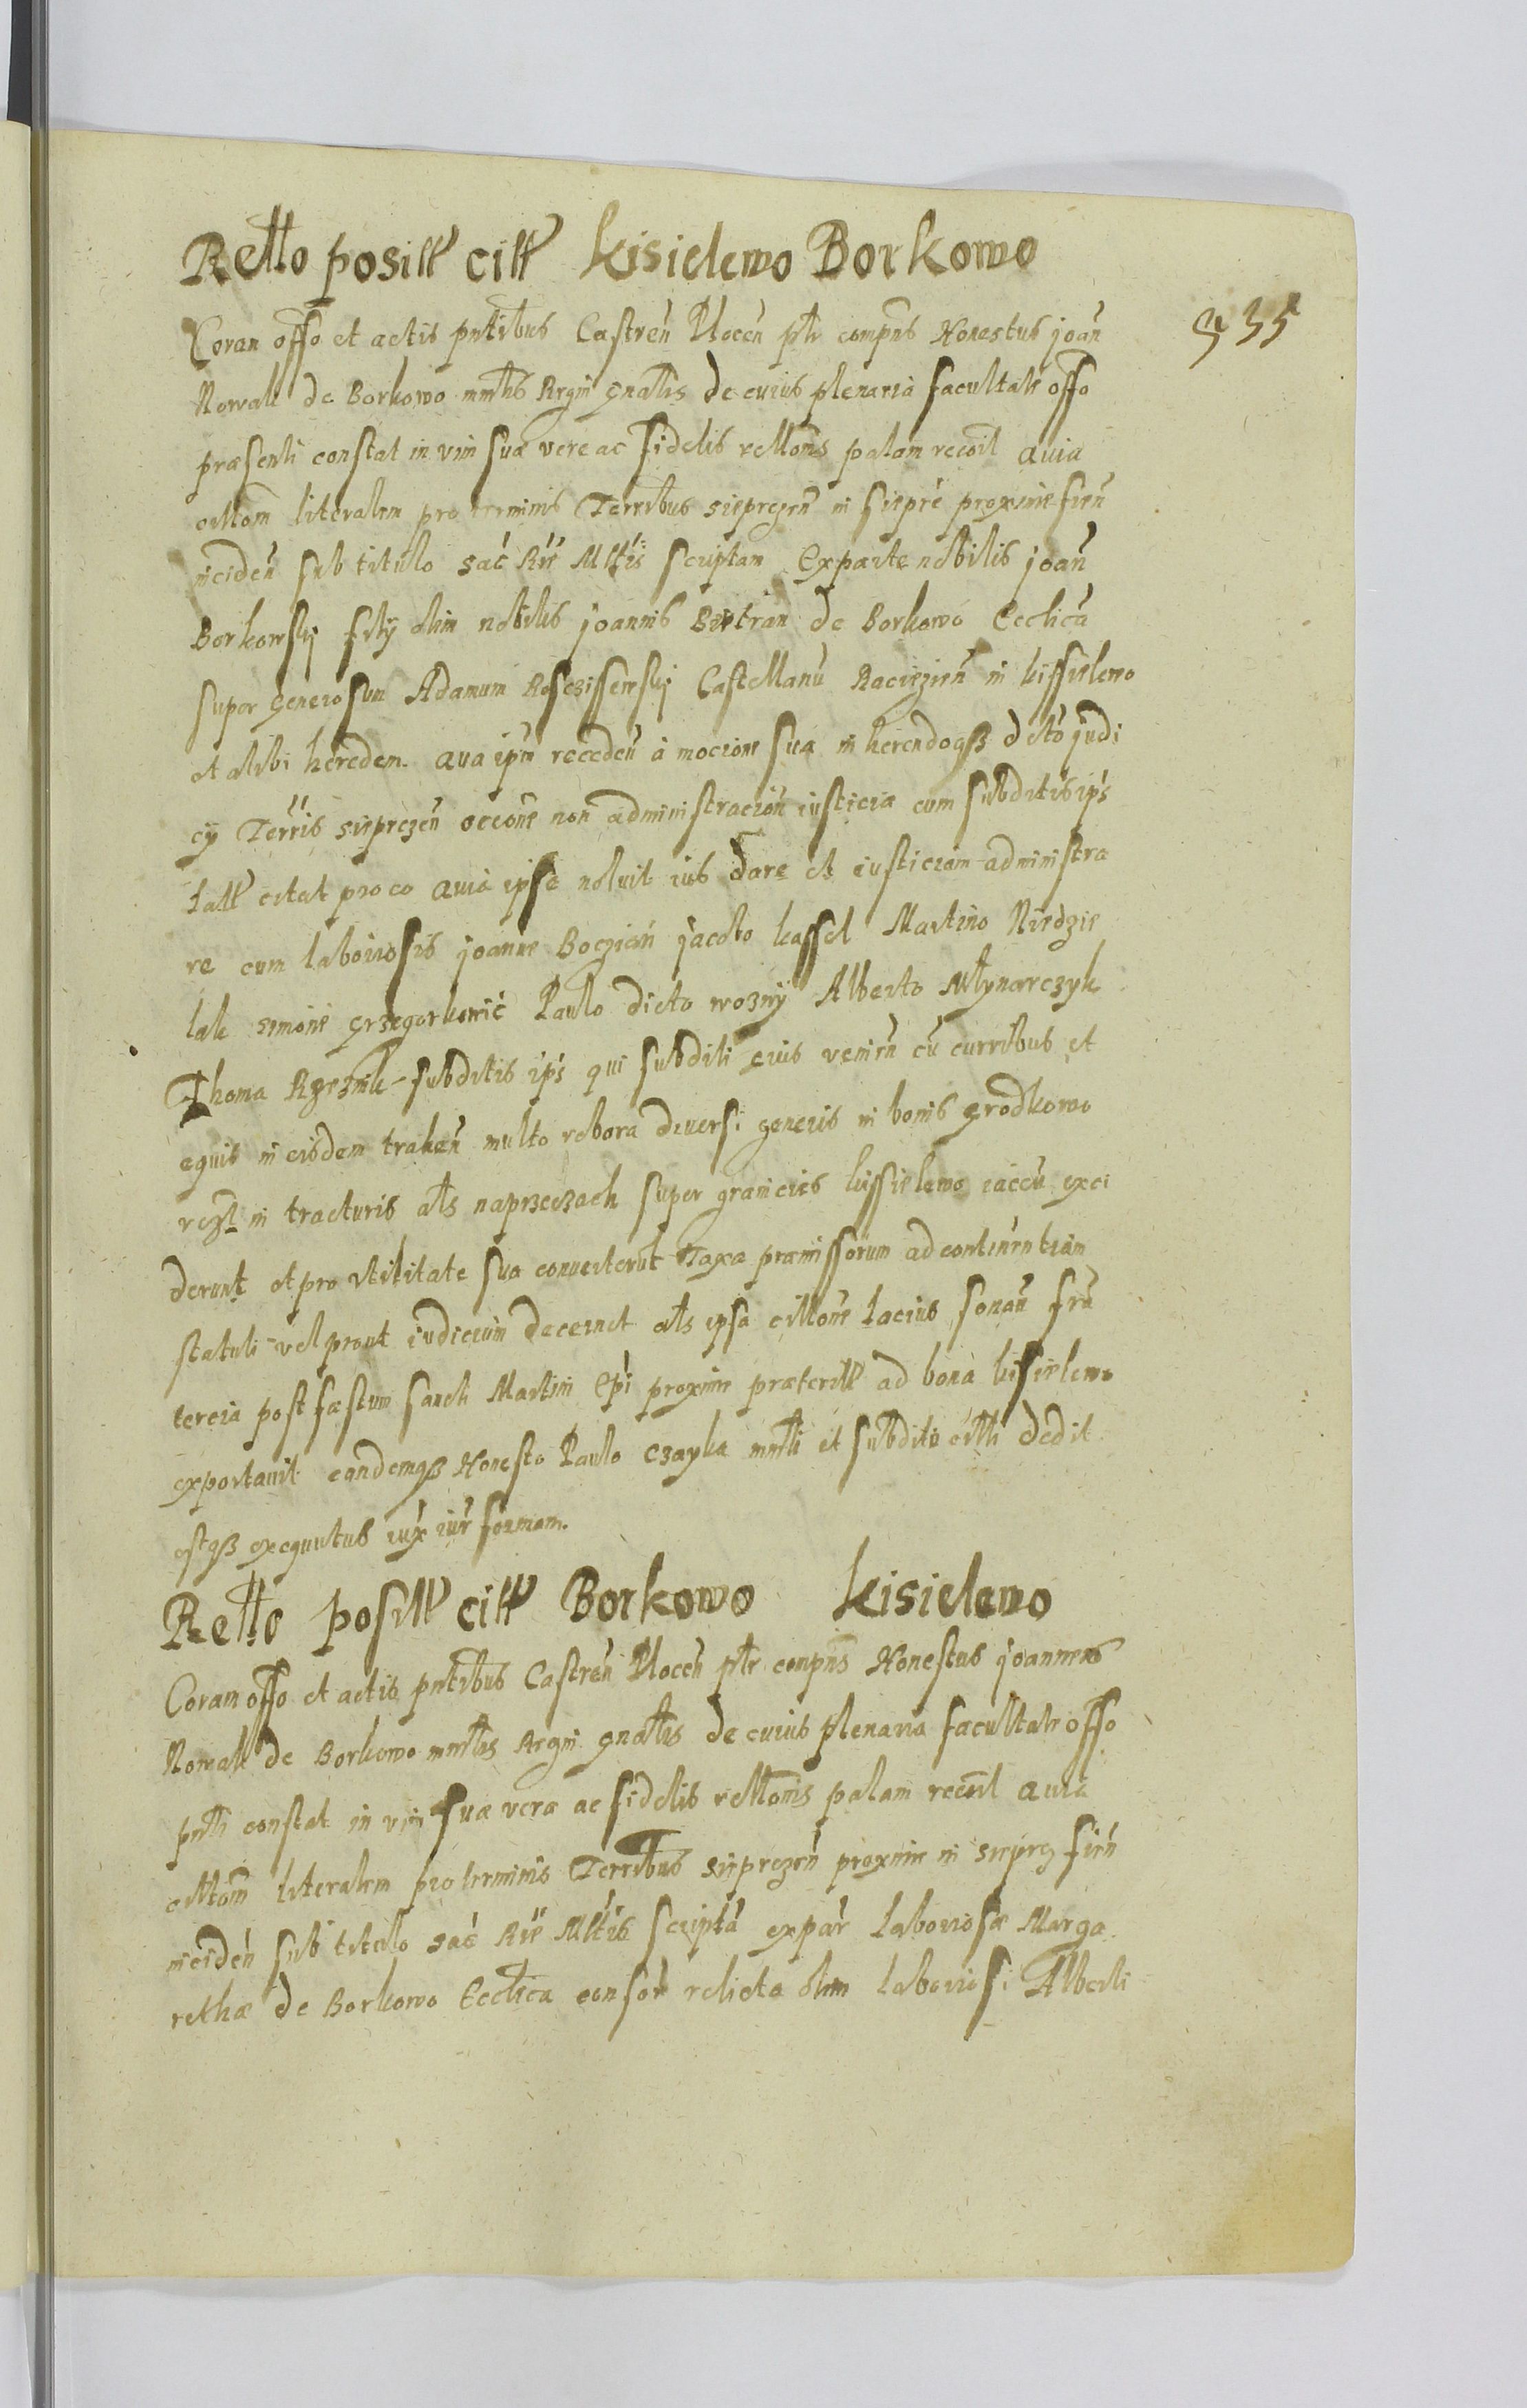 Retto positt citt Kisielewo Borkowo
535
Coram offo et actis pntibus Castren Plocen ptr compns Honestus joan
Nowak de Borkowo mnrlis Regni gnalis de cuius plenaria facultate offo
præsenti constat in vim suæ veræ ac fidelis rellonis palam recoit quia
cittom literalem pro terminis Terribus sieprczen in sieprc proxime fien
inciden sub titulo sac Rie Mttis scriptam Ex parte nobilis joan
Borkowskj filij olim nobilis joannis Bietran de Borkowo Ecclica
super Generosum Adamum Rosczissewskj Castellanu Raciezien in kissielewo
et alibi heredem. qua ipm receden a mocione sua in herendoqz dcto judi
cij Terris sieprczen occone non administracion iusticiæ cum subditis ips
latt citat pro eo quia ipse noluit ius dare et iusticiam administra
re cum laboriosis joanne Boczian jacobo kassel Martino Niedzie
lak simone grzegorkowic Paulo dicto wozny Alberto Młynarczyk
Thoma Rzeznik subditis ips qui subditi eius venien cu curribus et
equis in eisdem trahen multo robora diuersi generis in bonis grodkowo
rczt in tracturis als naprzeczach super granicies kissielewo iacen exci
derunt et pro utilitate sua conuerterut Taxa præmissorum ad continentiam
statuti vel prout iudicium decernet als ipsa cittone lacius sonan fra
tercia post fæstum sancti Martini Epi proxime præteritt ad bona kisielewo
exportauit eandemqz Honesto Paulo Czayka mnrli et subdito citti dedit
estqz exequutus iux iur formam.
Retto positt citt Borkowo Kisielewo
Coram offo et actis pntibus Castren Plocen ptr conpns Honestus joannes
Nowak de Borkowo mnrlis Regni gnalis de cuius plenaria facultate offo
pnti constat in vim suæ veræ ac fidelis rellonis palam recoit quia
cittom literalem pro terminis Terribus sieprczen proxime in sieprcz fien
inciden sub titulo sac Rie Mttis scripta ex par laboriosæ Marga
rethæ de Borkowo Ecclica consor relicta olim laboriosi Alberti